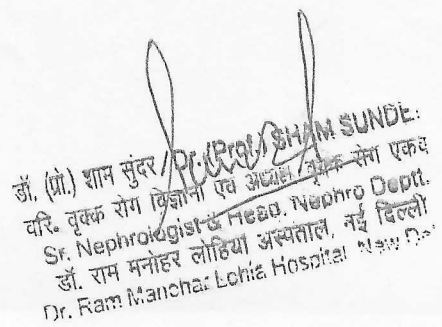 डॉ. (प्रो.) शाम सुंदर / Dr. (Prof.) SHAM SUNDE
वरि. वृक्क रोग विज्ञानी एवं अध्यक्ष, वृक्क रोग एकक
Sr. Nephrologist & Head, Nephro Deptt.
डॉ. राम मनोहर लोहिया अस्पताल, नई दिल्ली
Dr. Ram Manohar Lohia Hospital New De